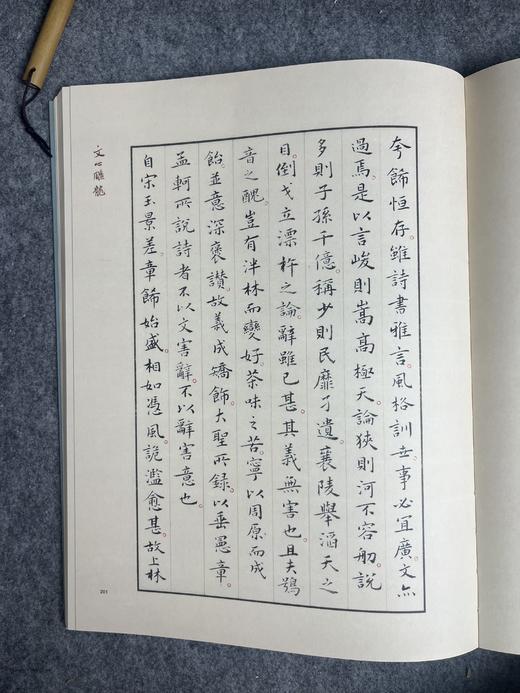 夸飾恒存。雖詩書雅言。風格訓世。事必宜廣。文亦
過焉。是以言峻則嵩高極天。論狹則河不容舠。說
多則子孫千億。稱少則民靡孑遺。襄陵舉滔天之
目。倒戈立漂杵之論。辭雖已甚。其義無害也。且夫鴞
音之醜。豈有泮林而變好。荼味之苦。寧以周原而成
飴。並意深褒讚。故義成矯飾。大聖所錄。以垂憲章。
孟軻所說詩者不以文害辭。不以辭害意也。
自宋玉景差。章飾始盛。相如憑風。詭濫愈甚。故上林
文心雕龍
201